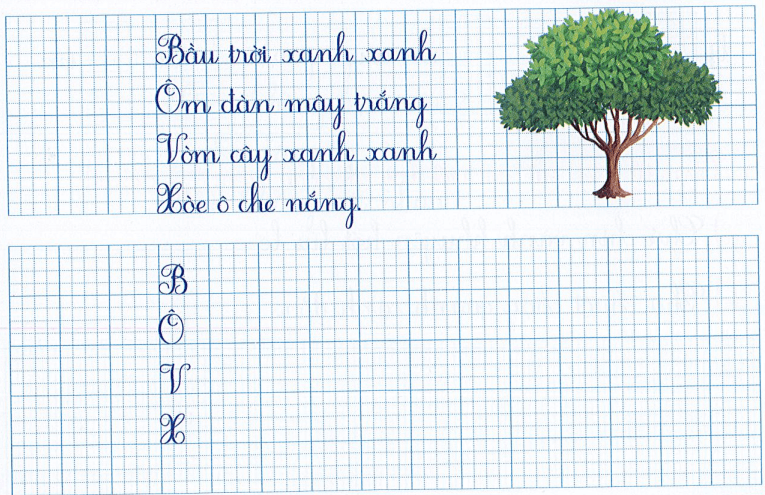 Bầu trời xanh xanh
Ôm đàn mây trắng
Vòm cây xanh xanh
Xòe ô che nắng.
B
Ô
V
X